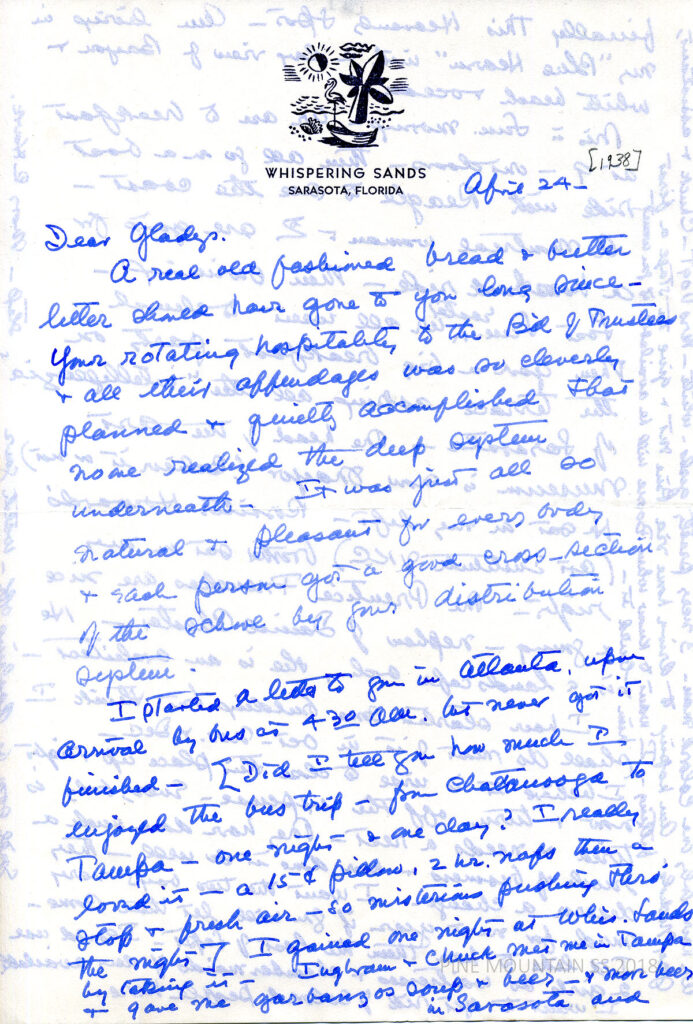 WHISPERING SANDS
SARASOTA, FLORIDA
[1938]
April 24-
Dear Gladys.
A real old fashioned bread & butter
letter should have gone to you long since-
Your rotating hospitality to the Bd of Trustees
& all their appendages was so cleverly
planned & quietly accomplished that
none realized the deep system
underneath- It was just all so
natural & pleasant for every body
& each person got a good cross-section
of the school by your distribution
system.
I started a letter to you in Atlanta, upon
arrival by bus at 4 30 A.M. but never got it
finished- [Did I tell you how much I
enjoyed the bus trip- from Chattanooga to
Tampa- one night & one day? I really
loved it- a 15¢ pillow, 2 hr. naps then a
stop & fresh air- so misterious pushing thro'
the night] I gained one night at Whis. Sands
by taking it- Ingham & Chuck met me in Tampa
& gave me garbanzos soup & beer- & more beer
in Sarasota and
PINE MOUNTAIN SS 2018